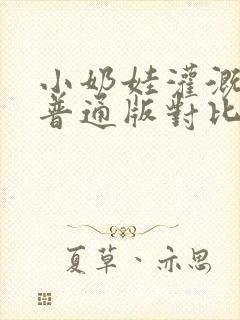 小奶娃灌溉
普通版對比
夏草、亦思